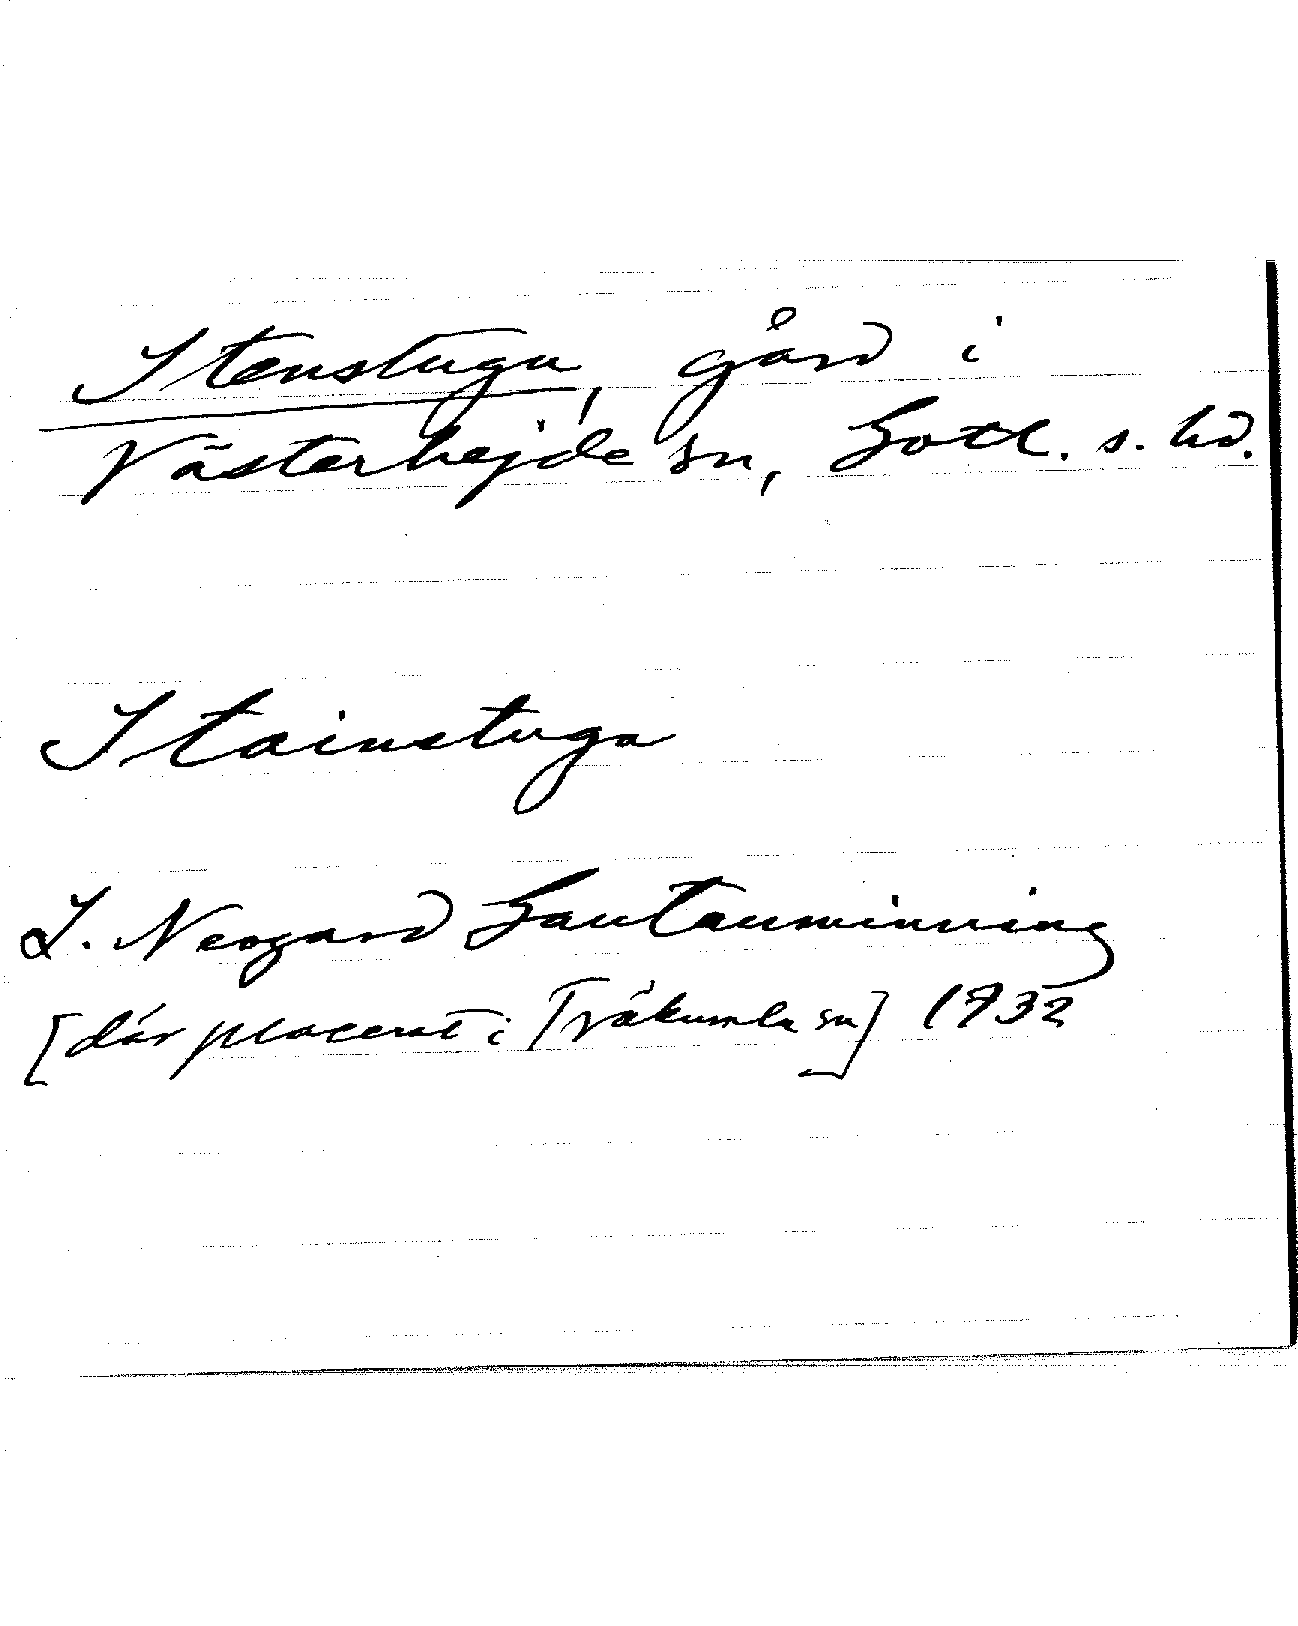 Stenstugu, gård i
Västerhejde sn, Gotl. s. hd.
Stainstuga
S. Neogard Gautauminning
[där placerat i Träkumla sn] 1932